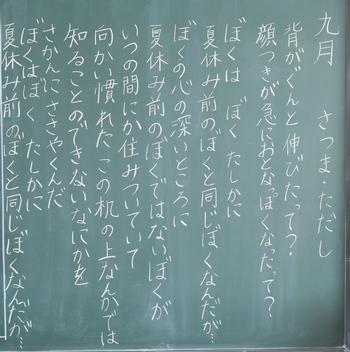 九月　　さつま・ただし
背がぐんと伸びたって?
顔つきが急におとなっぽくなったって?
ぼくは　ぼく　たしかに
夏休み前のぼくと同じぼくなんだが…
ぼくの心の深いところに
夏休み前のぼくではないぼくが
いつの間にか住みついていて
向かい慣れた この机の上なんかでは
知ることのできないなにかを
さかんに ささやくんだ
ぼくはぼく たしかに
夏休み前のぼくと同じぼくなんだが…